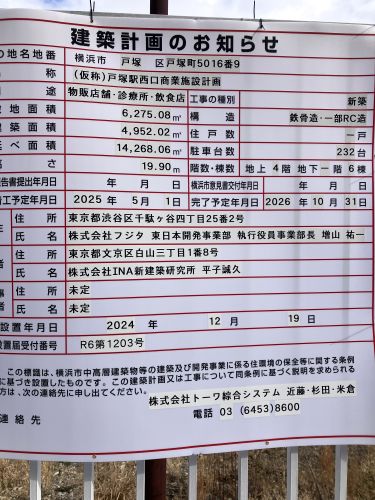 建築計画のお知らせ
の地名地番 横浜市 戸塚 区戸塚町5016番9
称 (仮称)戸塚駅西口商業施設計画
途 物販店舗・診療所・飲食店 工事の種別 新築
地面積 6,275.08㎡ 構造 鉄骨造・一部RC造
築面積 4,952.02㎡ 住戸数 ー戸
べ面積 14,268.06㎡ 駐車台数 232台
さ 19.90m 階数・棟数 地上 4階 地下一階 6棟
報告書提出年月日 年 月 日 横浜市意見書交付年月日 年 月 日
工予定年月日 2025年 5月 1日 完了予定年月日 2026年 10月 31日
住所 東京都渋谷区千駄ヶ谷四丁目25番2号
氏名 株式会社フジタ 東日本開発事業部 執行役員事業部長 増山 祐一
住所 東京都文京区白山三丁目1番8号
氏名 株式会社INA新建築研究所 平子誠久
住所 未定
氏名 未定
設置年月日 2024 年 12 月 19 日
設置届受付番号 R6第1203号
この標識は、横浜市中高層建築物等の建築及び開発事業に係る住環境の保全等に関する条例
に基づき設置したものです。この建築計画又は工事について同条例に基づく説明を求められる
方は、次の連絡先に申し出てください。
株式会社トーワ綜合システム 近藤・杉田・米倉
連絡先 電話 03 (6453)8600